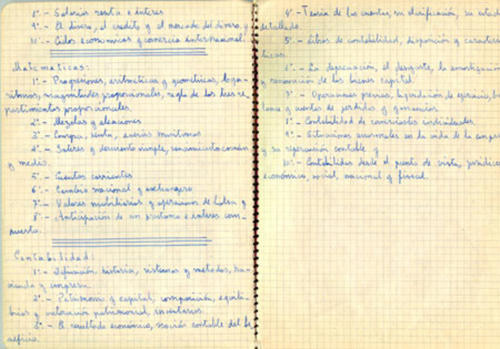 8º.- Salario renta e interes
9º.- El dinero, el credito y el mercado del dinero, y
10º.- Ciclos economicos y comercio internacional.
Matematicas:
1º.- Progresiones, aritméticas y geométricas, loga-
ritmos, magnitudes proporcionales, regla de tres re-
partimientos proporcionales.
2º.- Mezclas y aleaciones
3º.- Compra, venta, averias maritimas
4º.- Interes y descuento simple, vencimiento común
y medio.
5º.- Cuentas corrientes
6º.- Cambio nacional y extrangero
7º.- Valores mobiliarios y operaciones de bolsa y
8º.- Anticipación de un prestamo e interes com-
puesto.
Contabilidad:
1º.- Definición, historia, sistemas y metodos, ha-
cienda y empresa.
2º.- Patrimonio y capital, composición, equili-
brios y valoración patrimonial, inventarios.
3º.- El resultado económico, noción contable del be-
neficio.
4º.- Teoria de las cuentas, su clasificación, su estudio
detallado.
5º.- Libros de contabilidad, disposición y caracterís-
ticas.
6º.- La depreciación, el desgaste, la amortización
y renovación de los bienes capital.
7º.- Operaciones previas, liquidación de ejercicio, ba-
lance y cuentas de perdidas y ganancias.
8º.- Contabilidad de comerciantes individuales.
9º.- Situaciones anormales en la vida de la empresa
y su repercusión contable y
10º.- Contabilidad desde el punto de vista, juridico
económico, social, nacional y fiscal.